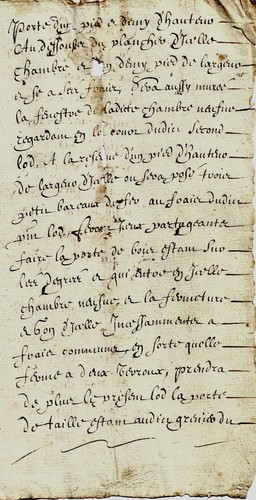 porte d'un pied et demy d'hauteur
au dessoubz du plancher d'icelle
chambre et d'un demy pied de largeur
et se a ses fraix, sera aussy murée
la fenestre de ladite chambre neufve
regardant en la cour dudit second
lod, et la reserve d'un pied d'hauteur
de largeur d'icelle ou sera posé trois
petitz bareaux de fer au fraix dudit
pnt lod, feront lieux partageantz
faire la porte de bois estant sur
les degres et qui entre en icelle
chambre neufve et la fermeture
et gon d'icelle incessamment a
fraix communs, en sorte quelle
ferme a deux verroux, prendra
de plus le present lod la porte
de taille estant audit grenier du